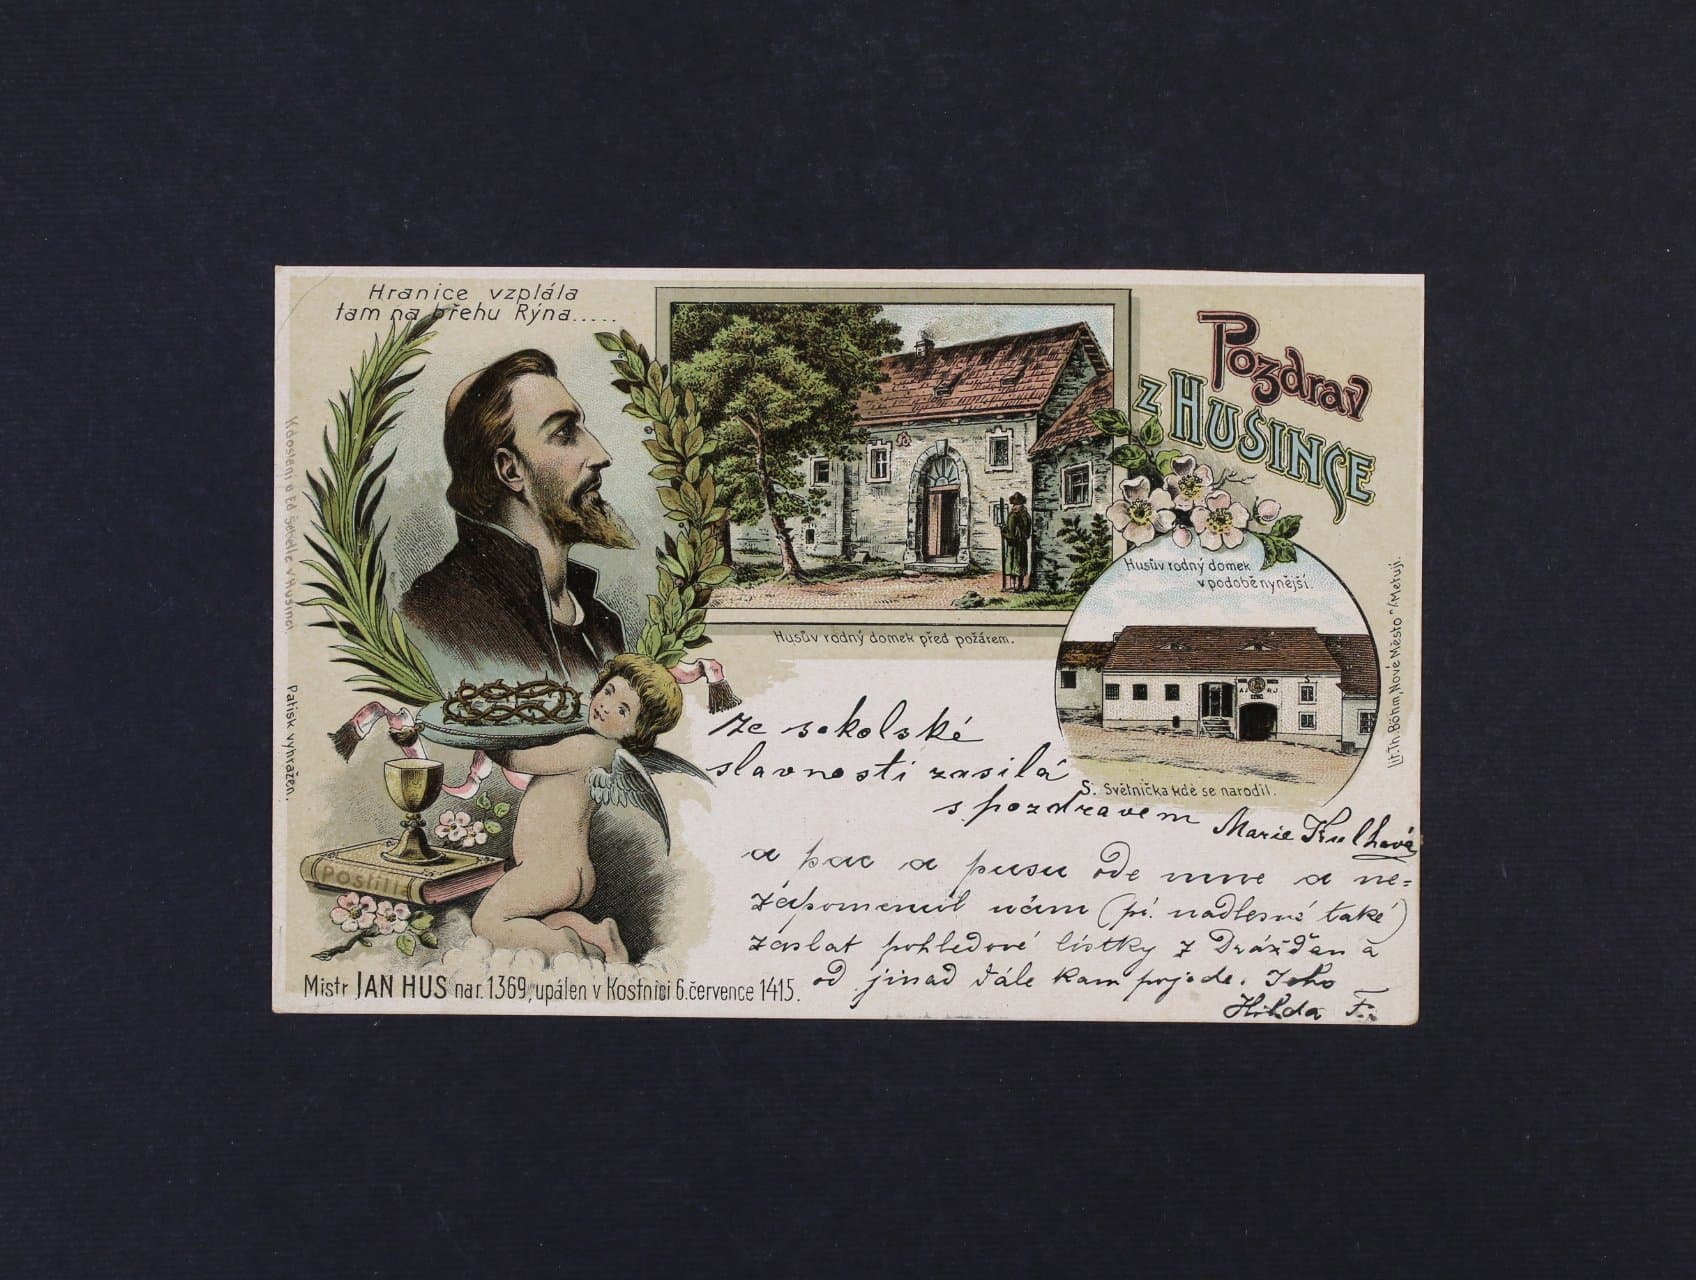 Hranice vzplála
tam na břehu Rýna.....
Pozdrav
z HUSINCE
Husův rodný domek před požárem.
Husův rodný domek
v podobě nynější.
S
S. Světnička kde se narodil.
Lit. Th. Böhm, Nové Město n/Metují.
v Husinci.
Patisk vyhražen.
Postilla
Mistr JAN HUS nar. 1369, upálen v Kostnici 6. července 1415.
Ze sokolské
slavnosti zasílá
s pozdravem
Marie
a pac a pusu ode mne a ne=
zapomenul nám (pí. nadlesní také)
zaslat pohledové lístky z Drážďan a
od jinad dále kam pojede. Jeho
Hilda F.